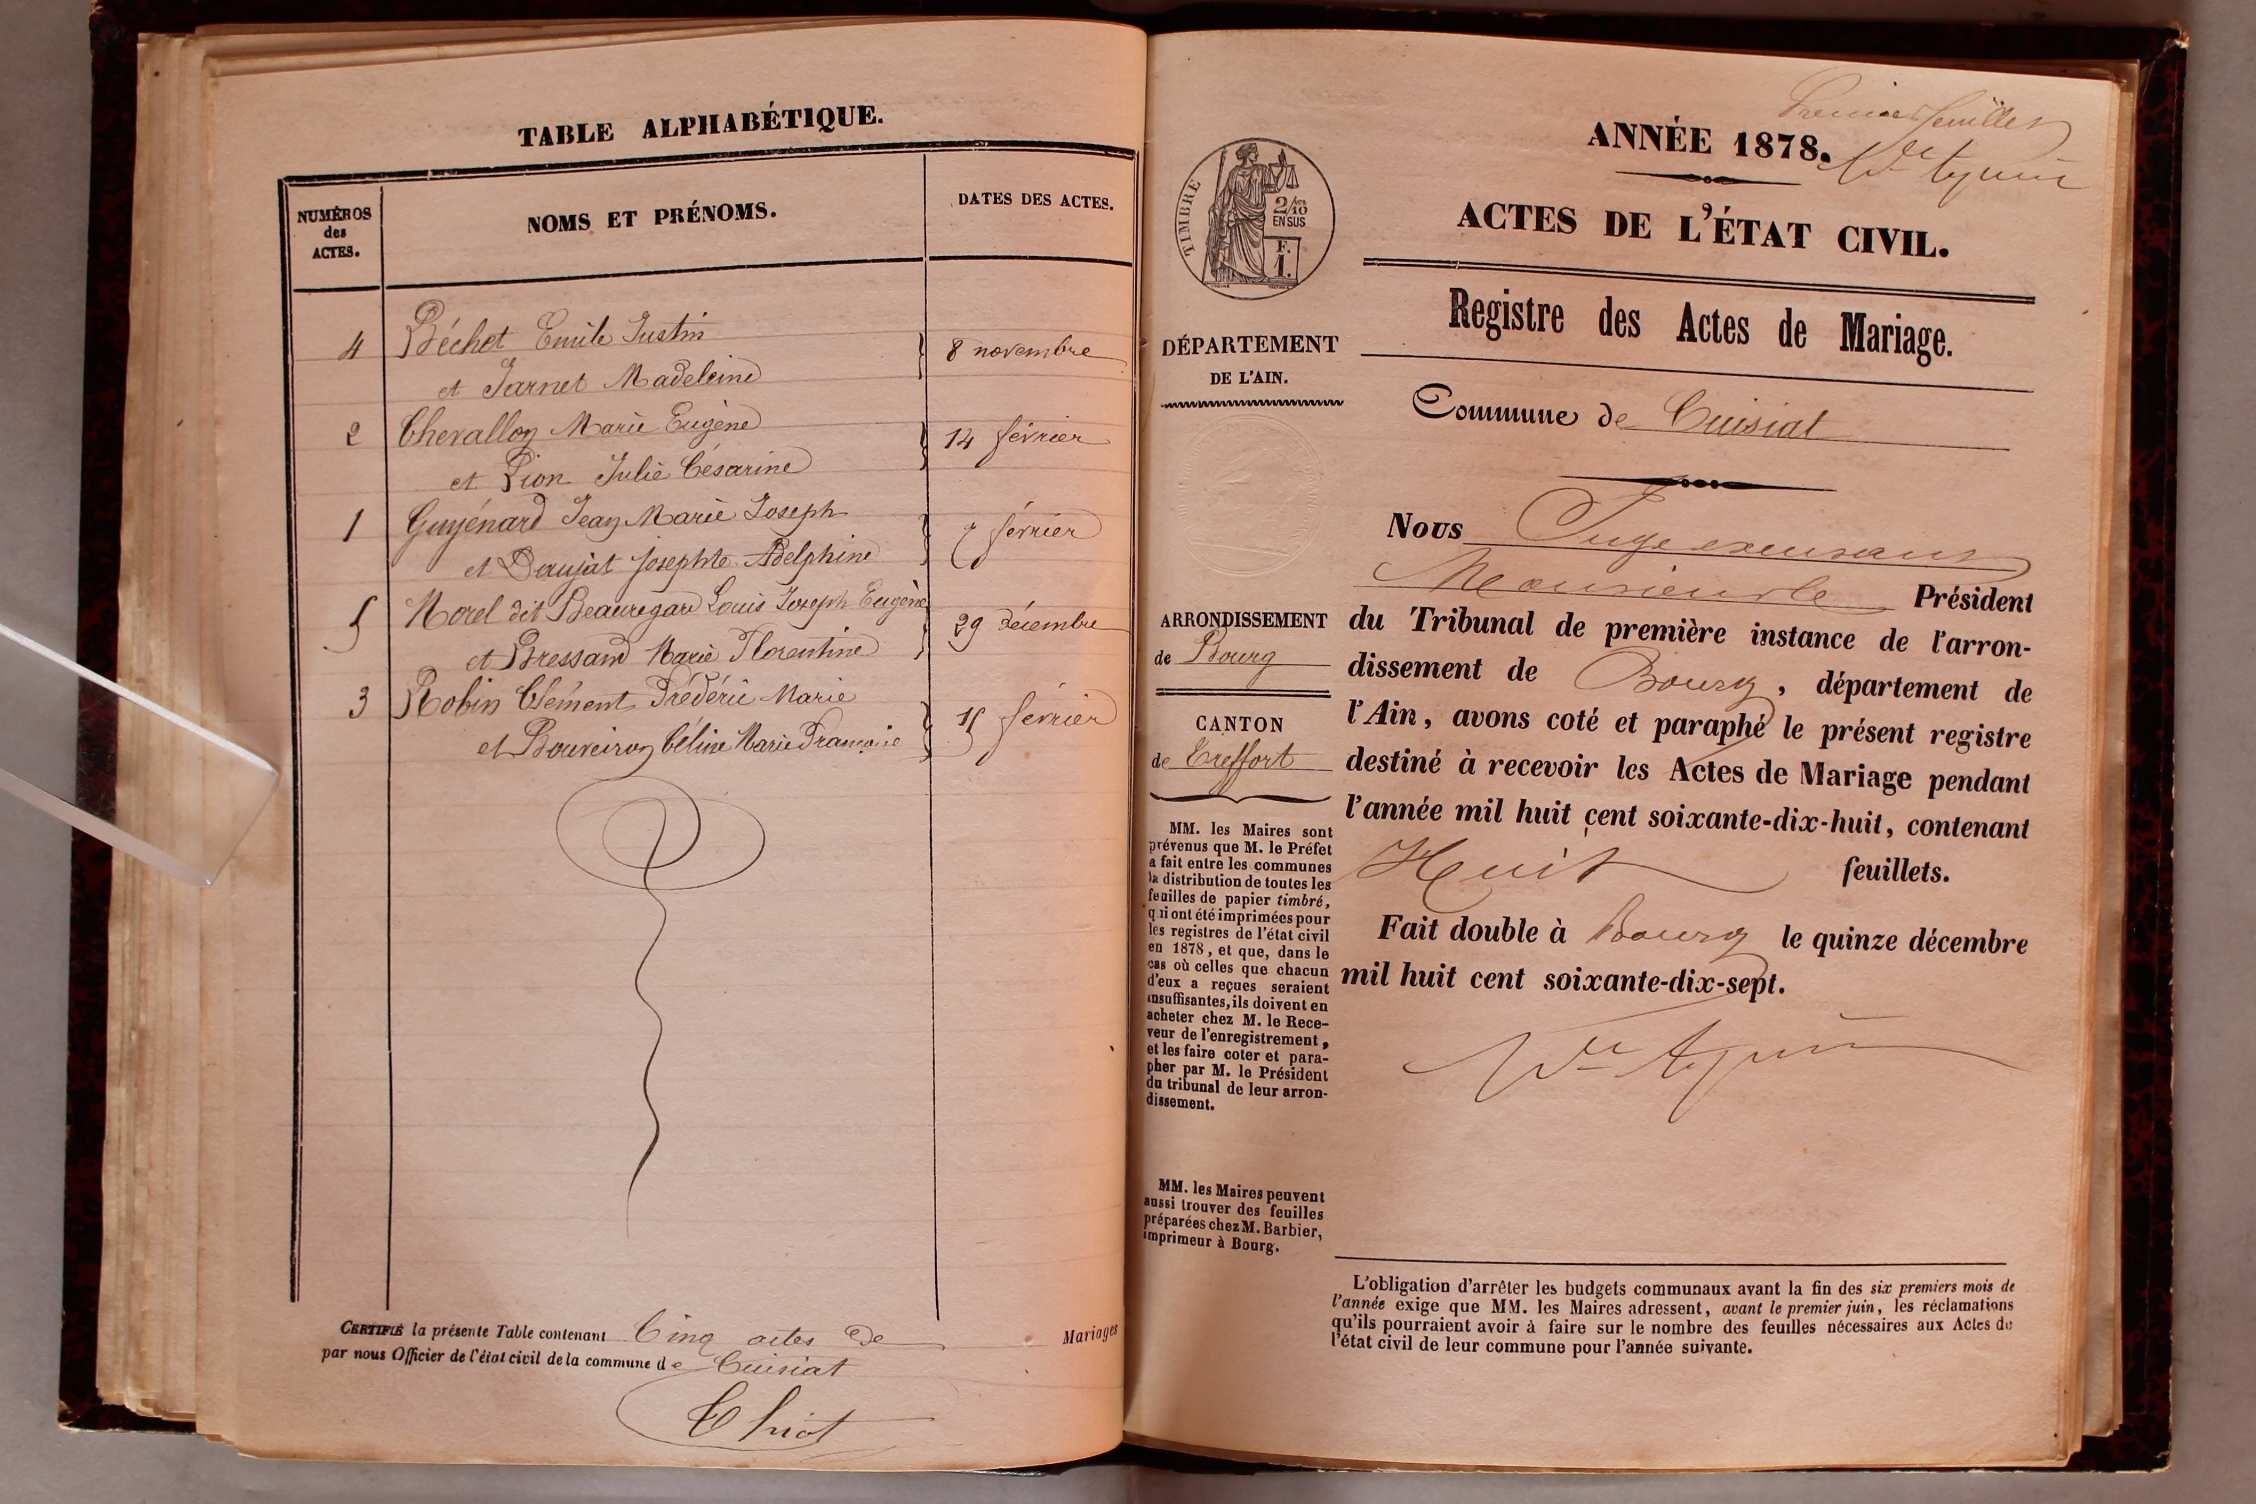 TABLE ALPHABÉTIQUE.
NUMÉROS
des
ACTES.
NOMS ET PRÉNOMS.
DATES DES ACTES.
4 Béchet Emile Justin
et Jarnet Madeleine
8 novembre
2 Chevallon Marie Eugène
et Pion Julie Césarine
14 février
1 Guyénard Jean Marie Joseph
et Daujat Josephte Adelphine
7 février
5 Morel dit Beauregard Louis Joseph Eugène
et Bressand Marie Florentine
29 décembre
3 Robin Clément Frédéric Marie
et Bouveiron Céline Marie Françoise
15 février
CERTIFIÉ la présente Table contenant Cinq actes de Mariages
par nous Officier de l'état civil de la commune de Cuisiat
Premier feuillet
ANNÉE 1878.
ACTES DE L'ÉTAT CIVIL.
Registre des Actes de Mariage.
Commune de Cuisiat
TIMBRE
2/10
EN SUS
F.
1.
DÉPARTEMENT
DE L'AIN.
ARRONDISSEMENT
de Bourg
CANTON
de Treffort
MM. les Maires sont
prévenus que M. le Préfet
a fait entre les communes
la distribution de toutes les
feuilles de papier timbré,
qui ont été imprimées pour
les registres de l'état civil
en 1878, et que, dans le
cas où celles que chacun
d'eux a reçues seraient
insuffisantes, ils doivent en
acheter chez M. le Rece-
veur de l'enregistrement,
et les faire coter et para-
pher par M. le Président
du tribunal de leur arron-
dissement.
MM. les Maires peuvent
aussi trouver des feuilles
préparées chez M. Barbier,
imprimeur à Bourg.
Nous Juge excusant
Monsieur le Président
du Tribunal de première instance de l'arron-
dissement de Bourg, département de
l'Ain, avons coté et paraphé le présent registre
destiné à recevoir les Actes de Mariage pendant
l'année mil huit cent soixante-dix-huit, contenant
Huit feuillets.
Fait double à Bourg le quinze décembre
mil huit cent soixante-dix-sept.
L'obligation d'arrêter les budgets communaux avant la fin des six premiers mois de
l'année exige que MM. les Maires adressent, avant le premier juin, les réclamations
qu'ils pourraient avoir à faire sur le nombre des feuilles nécessaires aux Actes de
l'état civil de leur commune pour l'année suivante.